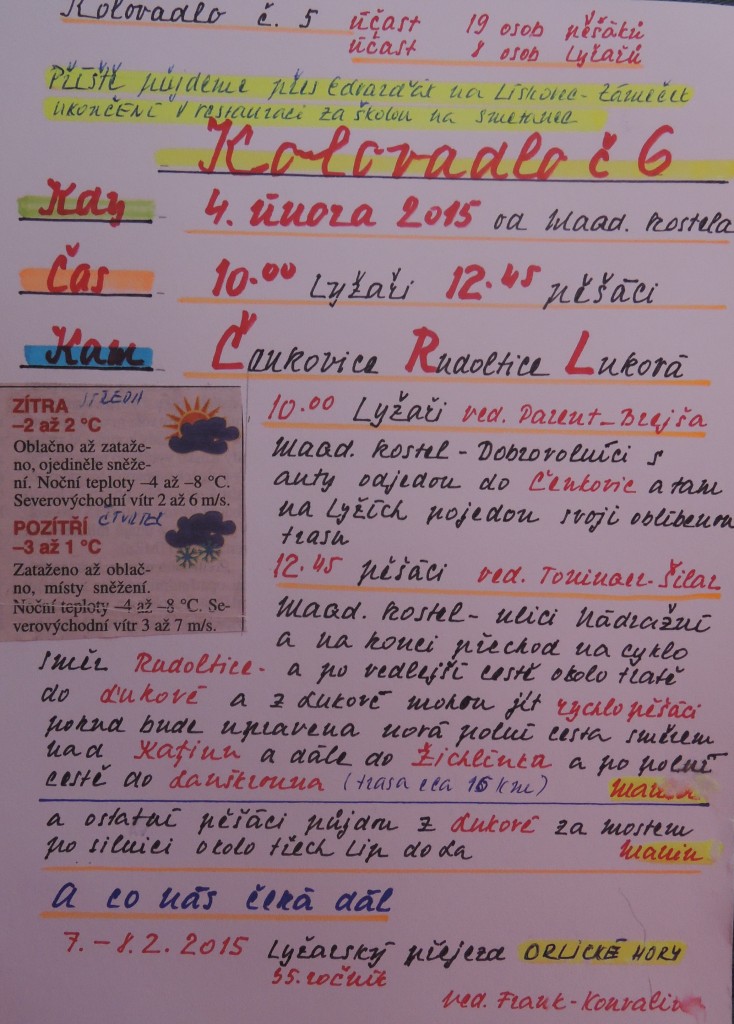 Kolovadlo č. 5 účast 19 osob pěšáků
účast 8 osob Lyžařů
Příště půjdeme přes Edvarďák na Liskovec-Zámeček
ukončení v restauraci za školou na smetance
Kolovadlo č 6
Kdy 4. února 2015 od Maad. kostela
Čas 10.00 Lyžaři 12.45 pěšáci
Kam Čenkovice Rudoltice Luková
ZÍTRA STŘEDA
–2 až 2 °C
Oblačno až zataže-
no, ojediněle sněže-
ní. Noční teploty –4 až –8 °C.
Severovýchodní vítr 2 až 6 m/s.
POZÍTŘÍ ČTVRTEK
–3 až 1 °C
Zataženo až oblač-
no, místy sněžení.
Noční teploty –4 až –8 °C. Se-
verovýchodní vítr 3 až 7 m/s.
10.00 Lyžaři ved. Parent-Brejša
Maad. kostel - Dobrovolníci s
auty odjedou do Čenkovic a tam
na Lyžích pojedou svoji oblíbenou
trasu
12.45 pěšáci ved. -Šilar
Maad. kostel - ulicí Nádražní
a na konci přechod na cyklo
směr Rudoltice - a po vedlejší cestě okolo tratě
do Lukové a z Lukové mohou jít rychlo pěšáci
pokud bude upravena nová polní cesta směrem
nad Kaťinu a dále do Žichlínka a po polní
cestě do Lanškrouna (trasa cca 16 km)
a ostatní pěšáci půjdou z Lukové za mostem
po silnici okolo třech Lip do La
A co nás čeká dál
7. – 8.2. 2015 Lyžařský přejezd ORLICKÉ HORY
55. ročník
ved. Frank-Konvalina